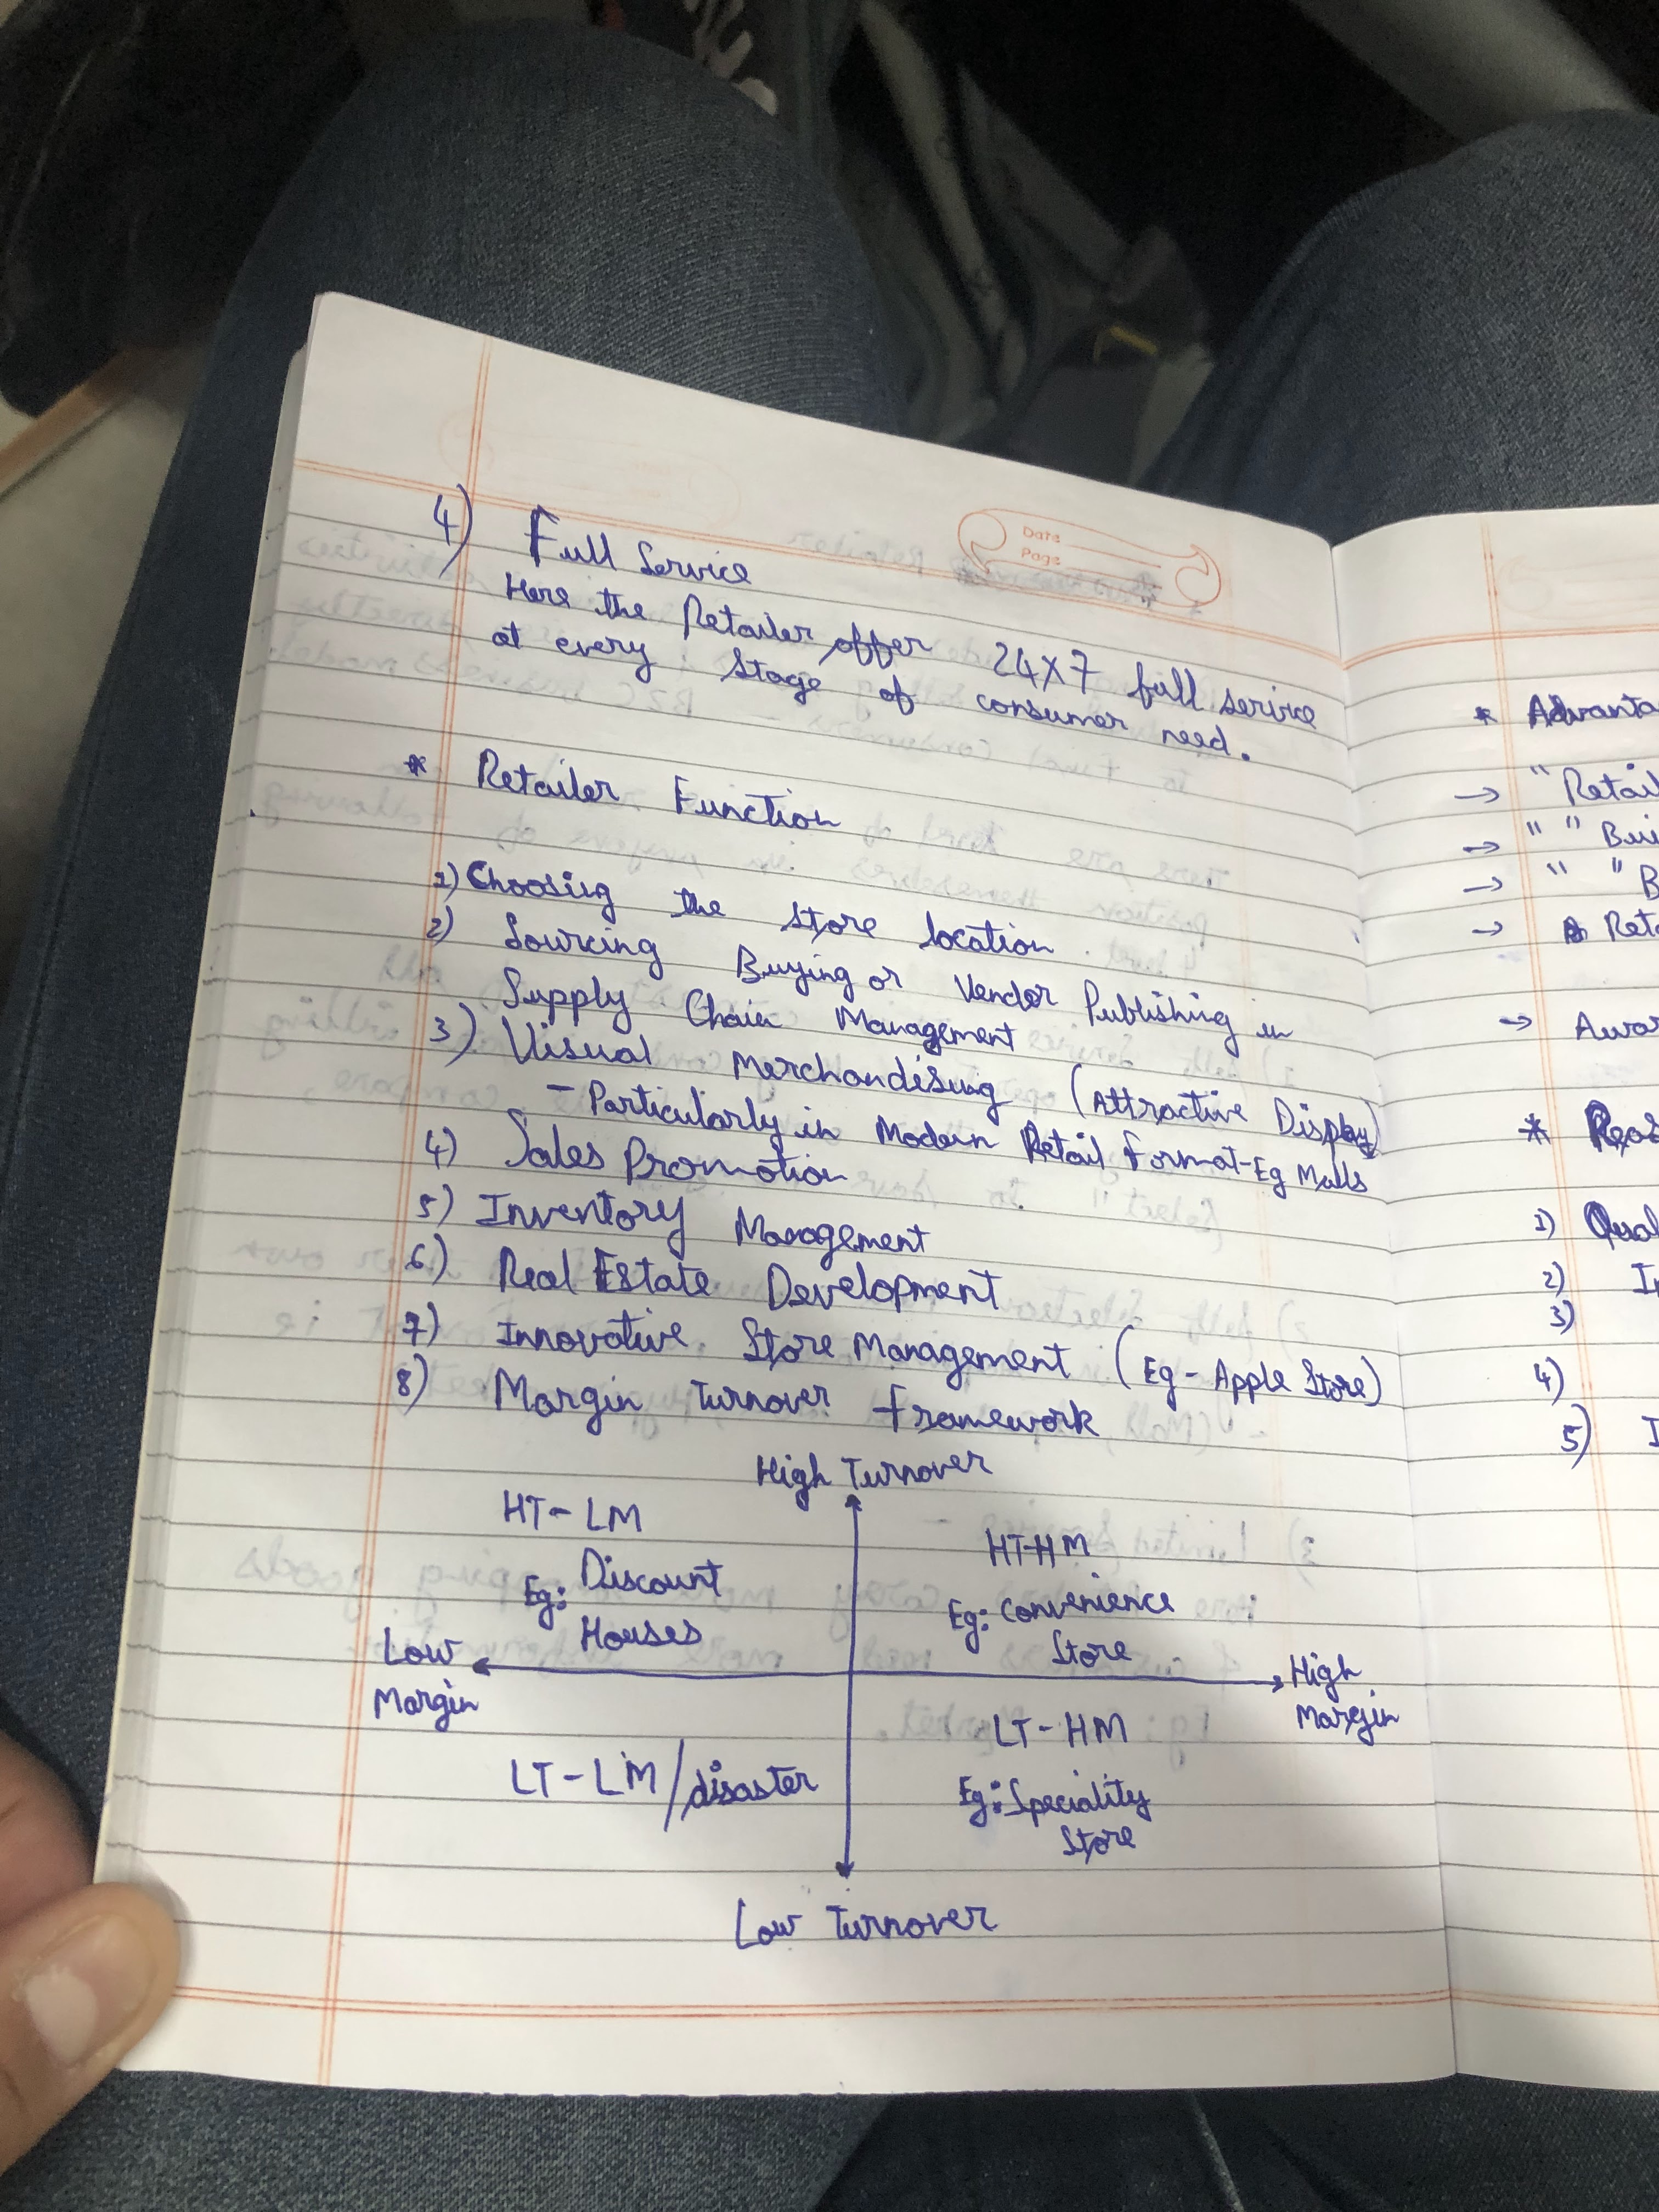 Date
Page
4) Full Service
Here the Retailer offer 24X7 full service
at every stage of consumer need.
* Retailer Function
1) Choosing the store location
2) Sourcing Buying or Vendor Publishing in
Supply Chain Management
3) Visual Merchandising (Attractive Display)
- Particularly in Modern Retail Format-Eg Malls
4) Sales Promotion
5) Inventory Management
6) Real Estate Development
7) Innovative Store Management (Eg - Apple Store)
8) Margin Turnover Framework
High Turnover
HT- LM
Eg: Discount
Houses
HT-HM
Eg: Convenience
Store
Low
Margin
High
Margin
LT-LM/disaster
LT-HM
Eg: Speciality
Store
Low Turnover
* Advanta
→ "Retail
→ " " Bui
→ " " B
→ Reta
→ Awar
* Reas
1) Qual
2) In
3)
4)
5) I